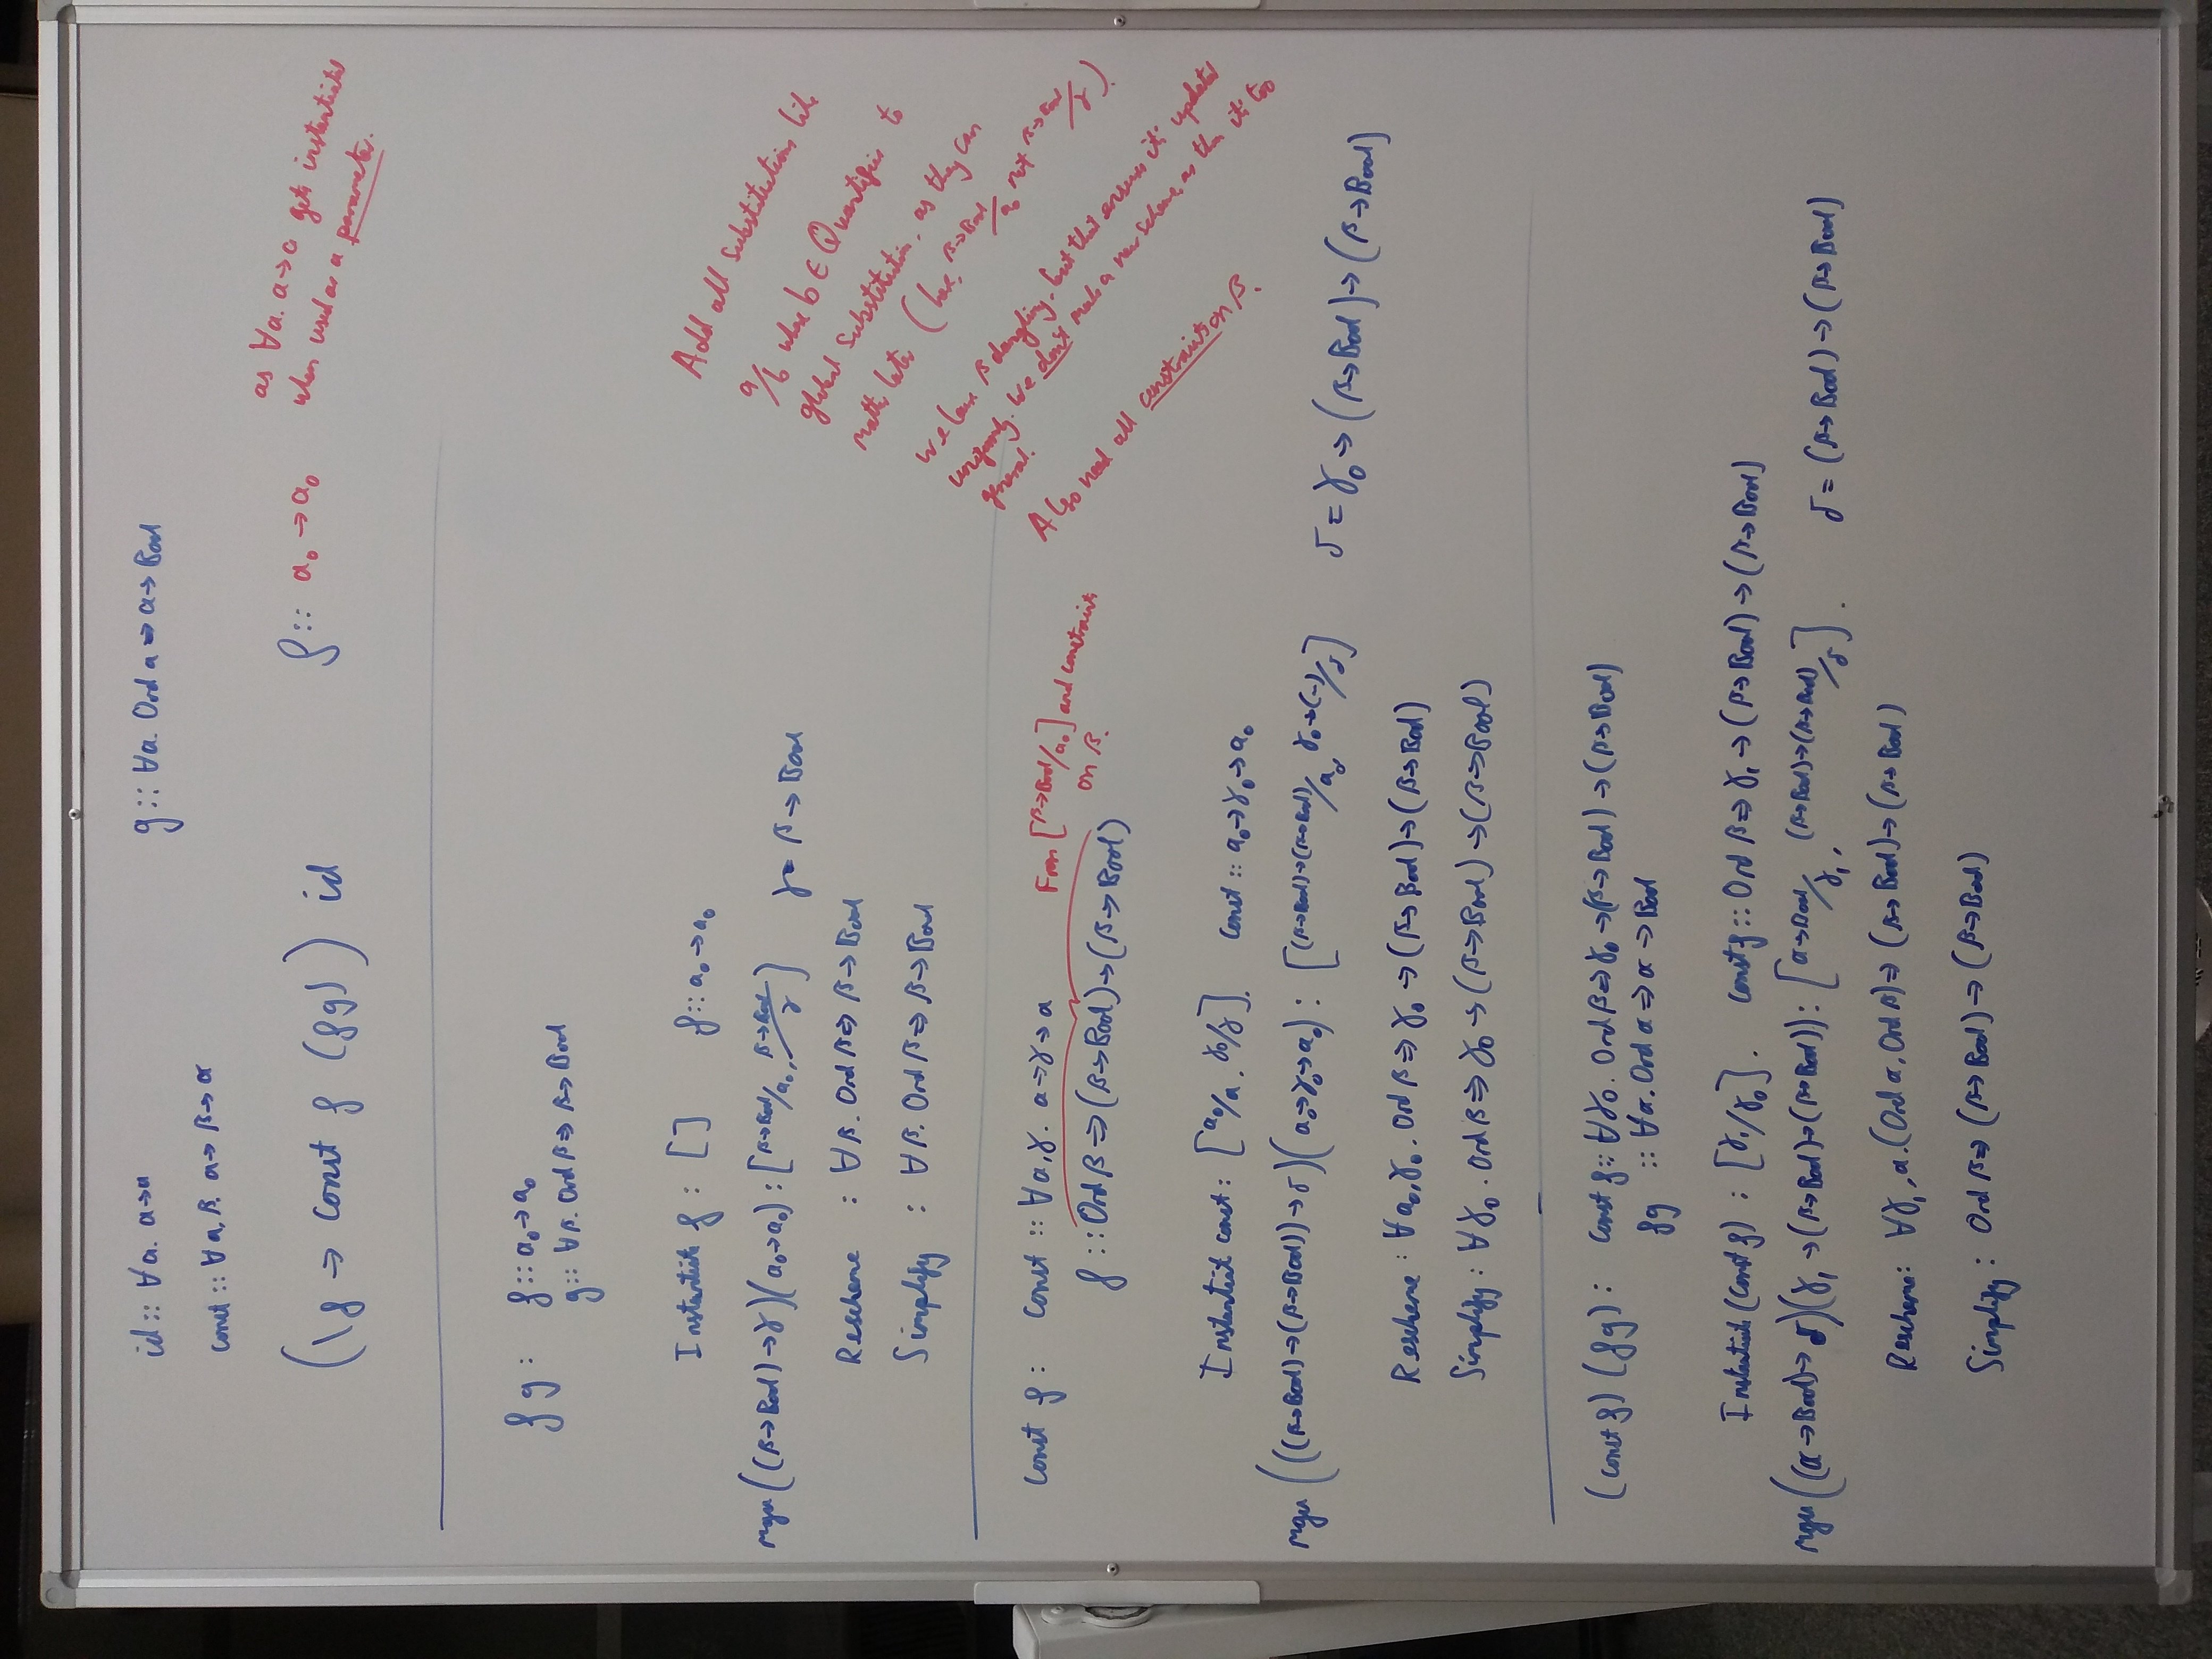 id :: ∀α. α→α
g :: ∀α. Ord α ⇒ α→Bool
const :: ∀α,β. α→β→α
(\f → const f (f g)) id
f :: α₀→α₀
as ∀α. α→α gets instantiated
when used as a parameter.
f g : f :: α₀→α₀
g :: ∀β. Ord β ⇒ β→Bool
Instantiate f : [] f :: α₀→α₀
mgu ((β→Bool)→γ)(α₀→α₀) : [β→Bool/α₀, β→Bool/γ] γ = β→Bool
Rescheme : ∀β. Ord β ⇒ β→Bool
Simplify : ∀β. Ord β ⇒ β→Bool
Add all substitutions like
a/b where b ∉ Quantifiers to
global substitution, as they can
matter later (here, β→Bool/α₀ not β→Bool/γ).
We leave β dangling, but that ensures it's updated
uniformly. We don't make a new scheme, as then it's too
general.
Also need all constraints on β.
const f : const :: ∀α,γ. α→γ→α
From [β→Bool/α₀] and constraints
on β.
f :: Ord β ⇒ (β→Bool)→(β→Bool)
Instantiate const : [α₀/α, γ₀/γ]. const :: α₀→γ₀→α₀
mgu (((β→Bool)→(β→Bool))→δ)(α₀→γ₀→α₀) : [(β→Bool)→(β→Bool)/α₀, γ₀→(–)/δ] δ = γ₀→(β→Bool)→(β→Bool)
Rescheme : ∀α₀,γ₀. Ord β ⇒ γ₀→(β→Bool)→(β→Bool)
Simplify : ∀γ₀. Ord β ⇒ γ₀→(β→Bool)→(β→Bool)
(const f) (f g) : const f :: ∀γ₀. Ord β ⇒ γ₀→(β→Bool)→(β→Bool)
f g :: ∀α. Ord α ⇒ α→Bool
Instantiate (const f) : [γ₁/γ₀]. const f :: Ord β ⇒ γ₁→(β→Bool)→(β→Bool)
mgu ((α→Bool)→δ)(γ₁→(β→Bool)→(β→Bool)) : [α→Bool/γ₁, (β→Bool)→(β→Bool)/δ]. δ = (β→Bool)→(β→Bool)
Rescheme : ∀γ₁,α. (Ord α, Ord β) ⇒ (β→Bool)→(β→Bool)
Simplify : Ord β ⇒ (β→Bool)→(β→Bool)